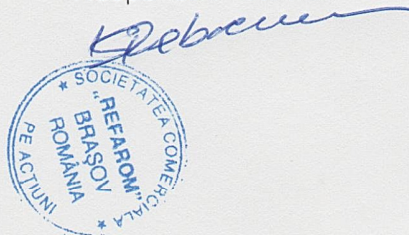 SOCIETATEA COMERCIALĂ
PE ACŢIUNI
"REFAROM"
BRAŞOV
ROMÂNIA